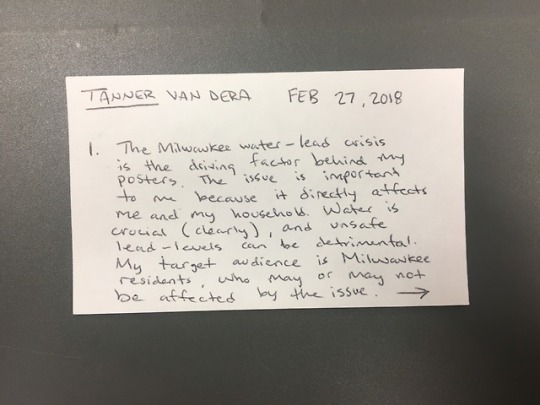 TANNER VAN DERA FEB 27, 2018
1. The Milwaukee water-lead crisis
is the driving factor behind my
posters. The issue is important
to me because it directly affects
me and my household. Water is
crucial (clearly), and unsafe
lead-levels can be detrimental.
My target audience is Milwaukee
residents, who may or may not
be affected by the issue. →